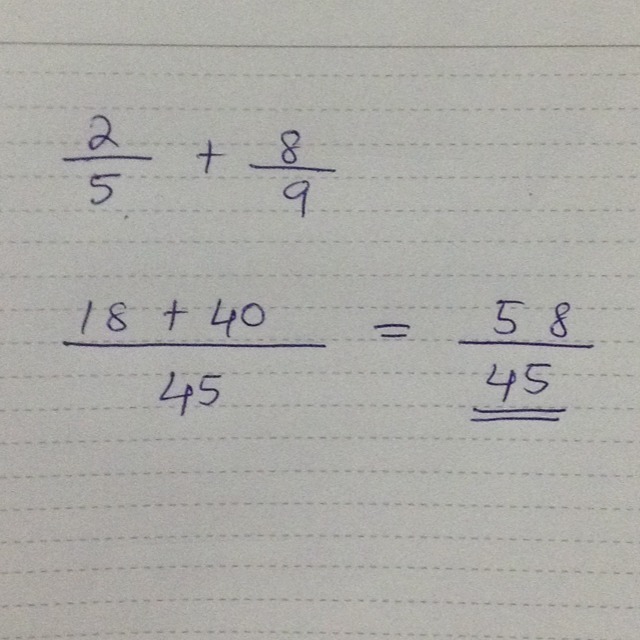 2/5 + 8/9
18 + 40/45 = 58/45